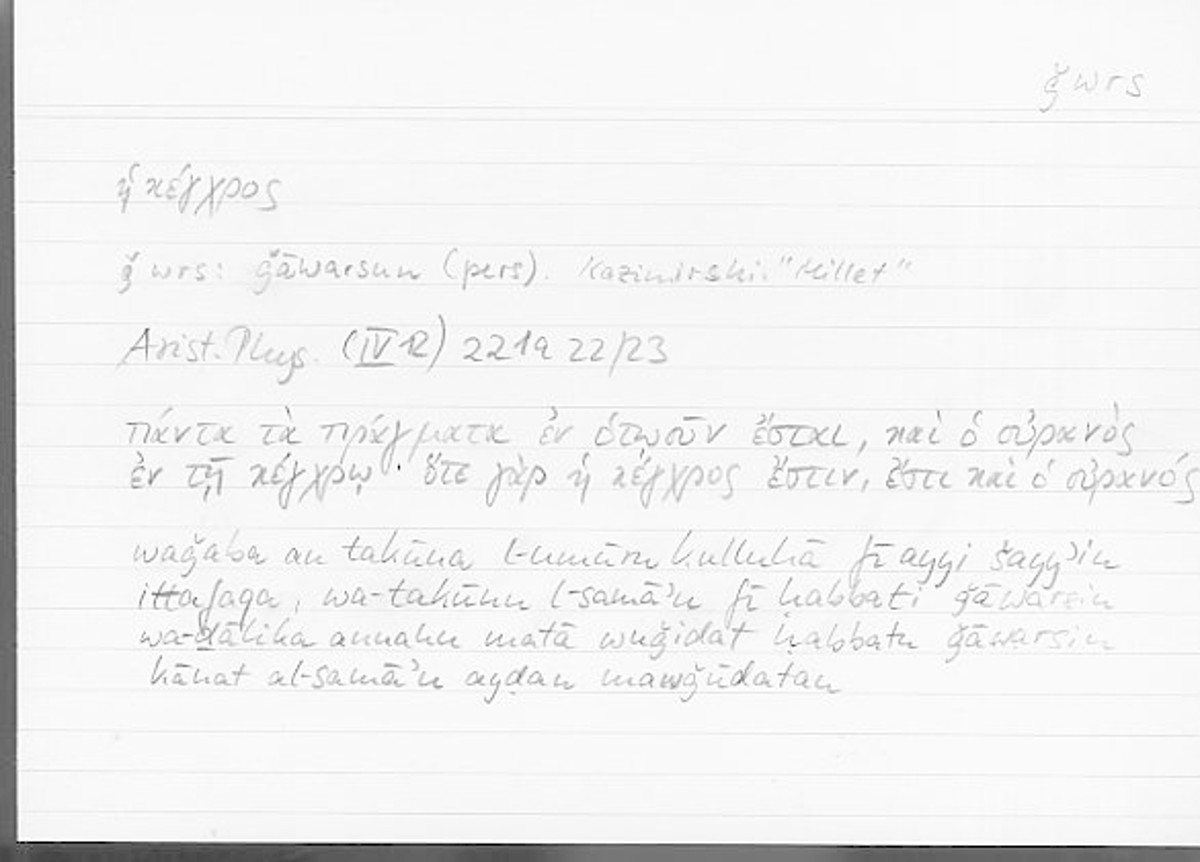 ǧwrs
ἡ κέγχρος
ǧwrs: ǧāwarsun (pers). Kazimirski: "Millet"
Arist. Phys. (IV 12) 221a 22/23
πάντα τὰ πράγματα ἐν ὁτῳοῦν ἔσται, καὶ ὁ οὐρανὸς
ἐν τῇ κέγχρῳ· ὅτε γὰρ ἡ κέγχρος ἔστιν, ἔστι καὶ ὁ οὐρανός
waǧaba an takūna l-umūru kulluhā fī ayyi šayy'in
ittafaqa, wa-takūnu l-samā'u fī ḥabbati ǧāwarsin
wa-ḏālika annahu matā wuǧidat ḥabbatu ǧāwarsin
kānat al-samā'u ayḍan mawǧūdatan